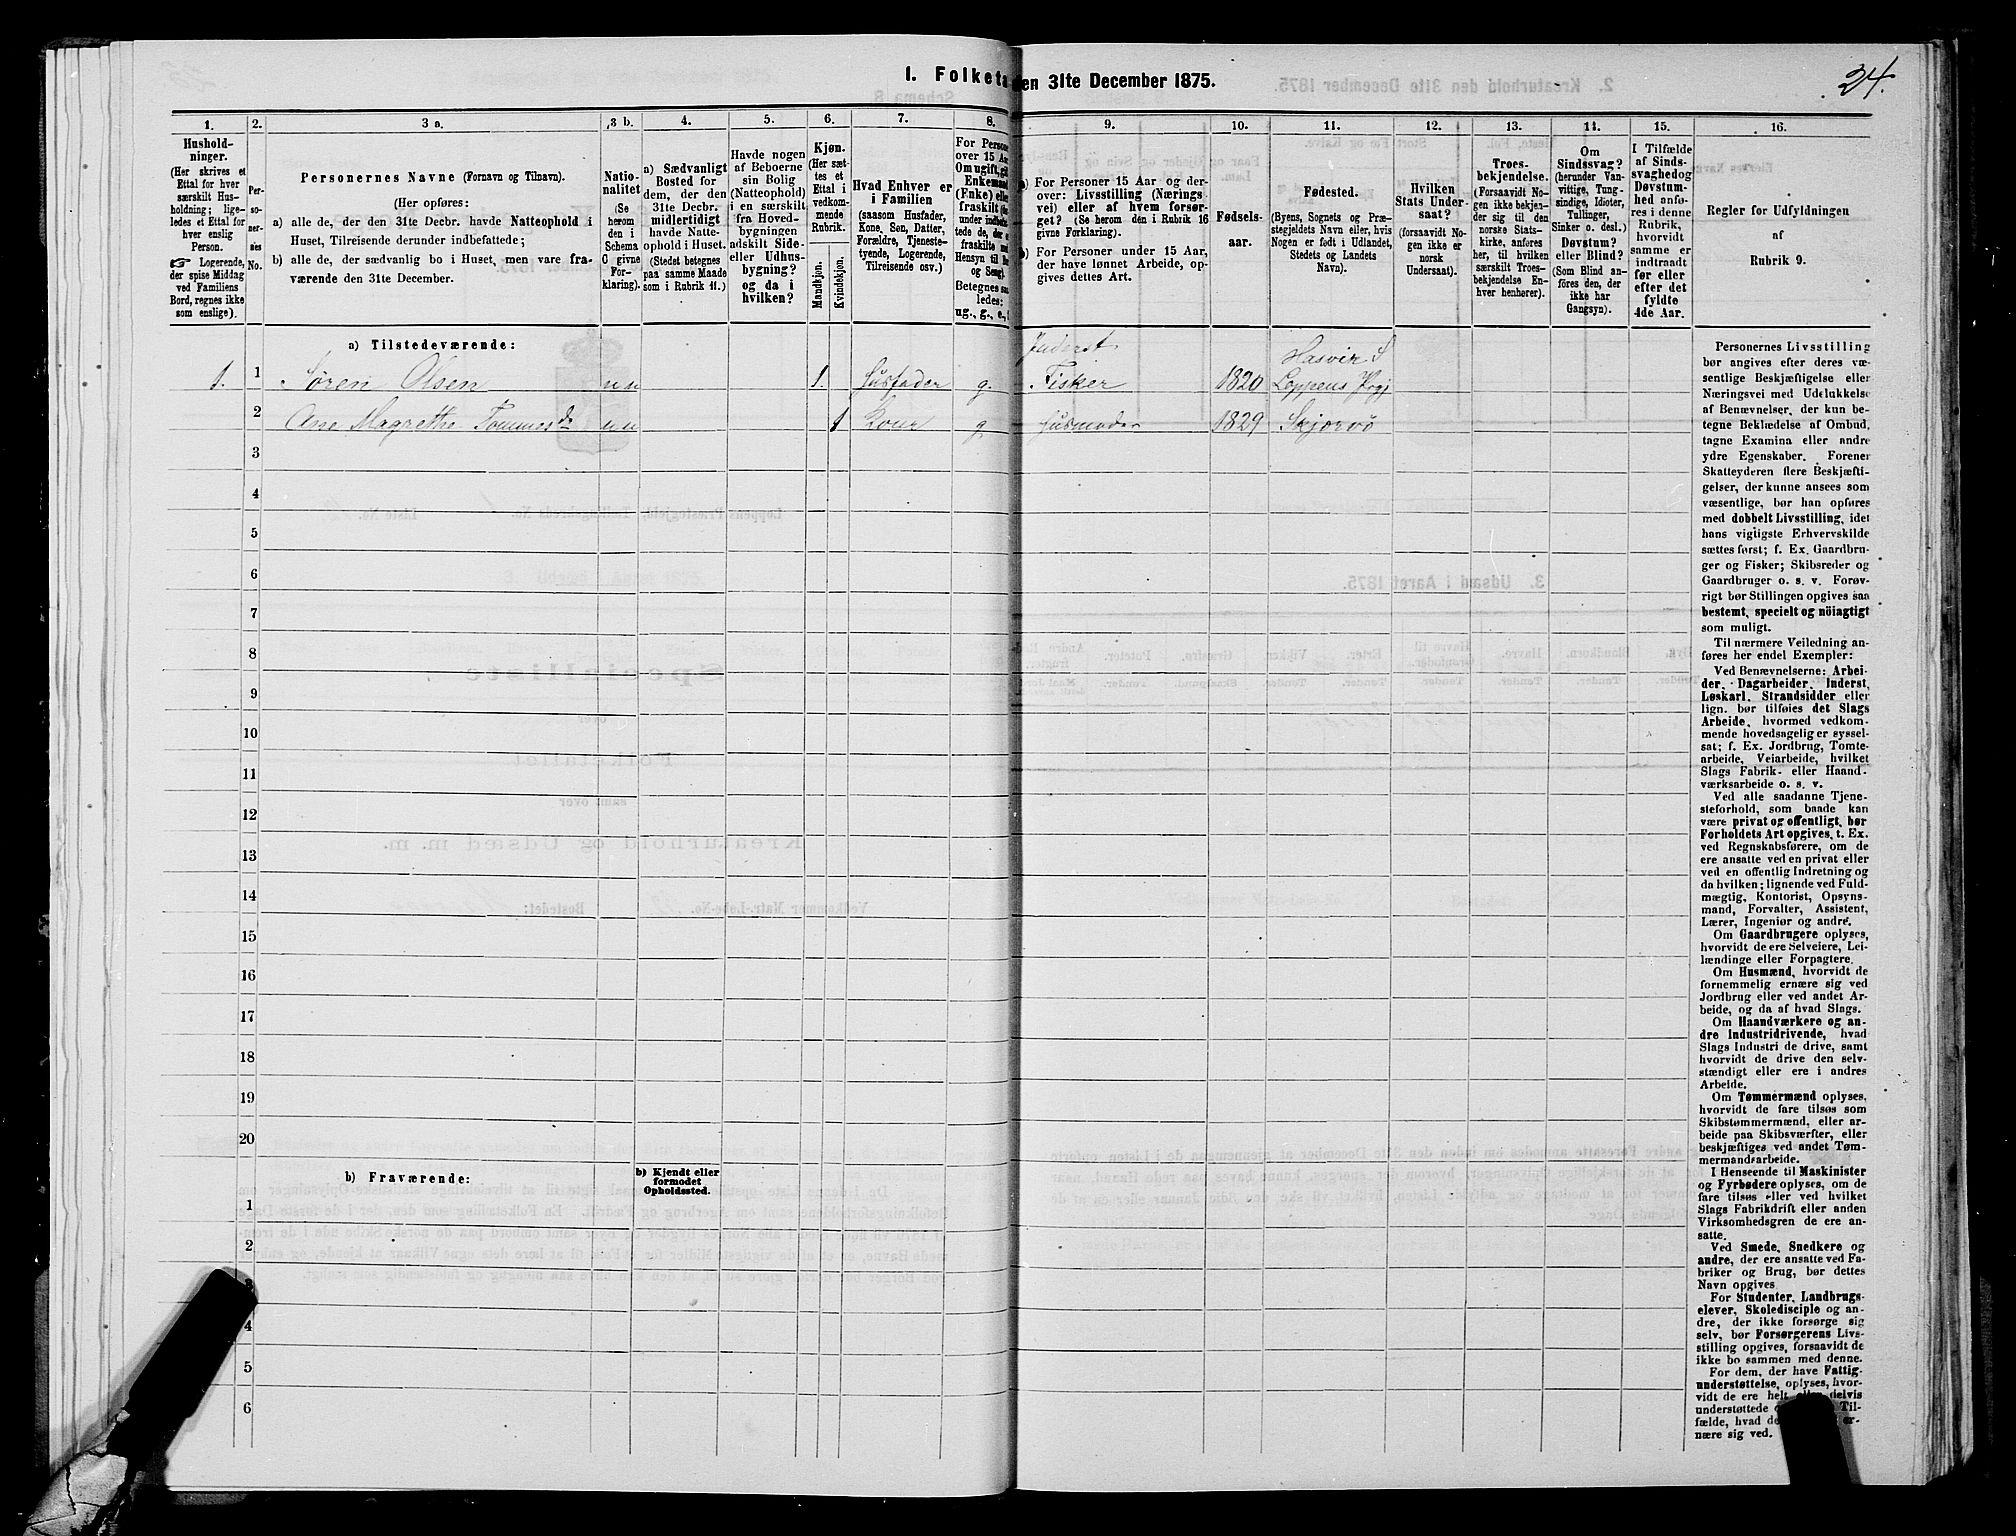 I. Folketa
den 31te December 1875.
24.
1.
Hushold-
ninger.
(Her skrives et
Ettal for hver
særskilt Hus-
holdning; lige-
ledes et Ettal for
hver enslig
Person.
☞ Logerende,
der spise Middag
ved Familiens
Bord, regnes ikke
som enslige).
2.
Per-
so-
ner-
nes
No.
3 a.
Personernes Navne (Fornavn og Tilnavn).
(Her opføres:
a) alle de, der den 31te Decbr. havde Natteophold i
Huset, Tilreisende derunder indbefattede;
b) alle de, der sædvanlig bo i Huset, men vare fra-
værende den 31te December.
3 b.
Natio-
nalitet
(Se
herom
den i
Schema
C givne
For-
klaring).
4.
a) Sædvanligt
Bosted for
dem, der den
31te Decbr.
midlertidigt
havde Natte-
ophold i Huset.
(Stedet betegnes
paa samme Maade
som i Rubrik 11.)
5.
Havde nogen
af Beboerne
sin Bolig
(Natteophold)
i en særskilt
fra Hoved-
bygningen
adskilt Side-
eller Udhus-
bygning?
og da i
hvilken?
6.
Kjøn.
(Her sæt-
tes et
Ettal i
vedkom-
mende
Rubrik.
Mandkjøn.
Kvindekjøn.
7.
Hvad Enhver er
i Familien
(saasom Husfader,
Kone, Søn, Datter,
Forældre, Tjeneste-
tyende, Logerende,
Tilreisende osv.)
8.
For Persone
over 15 Aa
Om ugift, gi
Enkemand
(Enke) elle
fraskilt
under indbe
tede de, der
fraskilte m
Hensyn til Bo
og Seng).
Betegnes sa
ledes:
ug., g., e.,
9.
a) For Personer 15 Aar og der-
over: Livsstilling (Nærings-
vei) eller af hvem forsør-
get? (Se herom den i Rubrik 16
givne Forklaring).
b) For Personer under 15 Aar,
der have lønnet Arbeide, op-
gives dettes Art.
10.
Fødsels-
aar.
11.
Fødested.
(Byens, Sognets og Præ-
stegjeldets Navn eller, hvis
Nogen er født i Udlandet,
Stedets og Landets
Navn).
12.
Hvilken
Stats Under-
saat?
(forsaavidt No-
gen ikke er
norsk
Undersaat).
13.
Troes-
bekjendelse.
(Forsaavidt No-
gen ikke bekjen-
der sig til den
norske Stats-
kirke, anføres
her, til hvilken
særskilt Troes-
bekjendelse En-
hver henhører).
14.
Om
Sindssvag?
(herunder Van-
vittige, Tung-
sindige, Idioter,
Tullinger,
Sinker o. desl.)
Døvstum?
eller Blind?
(Som Blind an-
føres den, der
ikke har
Gangsyn).
15.
I Tilfælde
af Sinds-
svaghed og
Døvstum-
hed anfø-
res i denne
Rubrik,
hvorvidt
samme er
indtraadt
før eller
efter det
fyldte
4de Aar.
16.
Regler for Udfyldningen
af
Rubrik 9.
a) Tilstedeværende:
Inderst
Hasvir S
1. 1 Søren Olsen n n 1. Husfader g. Fisker 1820 Loppens Prgj
2 Ane Magrethe Tommesdr n n 1 Kone g Husmoder 1829 Skjervö
3
4
5
6
7
8
9
10
11
12
13
14
15
16
17
18
19
20
b) Fraværende:
b) Kjendt eller
formodet
Opholdssted.
1
2
3
4
5
6
Personernes Livsstilling
bør angives efter deres væ-
sentlige Beskjæftigelse eller
Næringsvei med Udelukkelse
af Benævnelser, der kun be-
tegne Beklædelse af Ombud,
tagne Examina eller andre
ydre Egenskaber. Forener
Skatteyderen flere Beskjæfti-
gelser, der kunne ansees som
væsentlige, bør han opføres
med dobbelt Livsstilling, idet
hans vigtigste Erhvervskilde
sættes først; f. Ex. Gaardbru-
ger og Fisker; Skibsreder og
Gaardbruger o. s. v. Forøv-
rigt bør Stillingen opgives saa
bestemt, specielt og nöiagtigt
som muligt.
Til nærmere Veiledning an-
føres her endel Exempler:
Ved Benævnelserne: Arbei-
der, Dagarbeider, Inderst,
Løskarl, Strandsidder eller
lign. bør tilføies det Slags
Arbeide, hvormed vedkom-
mende hovedsagelig er syssel-
sat; f. Ex. Jordbrug, Tomte-
arbeide, Veiarbeide, hvilket
Slags Fabrik- eller Haand-
værksarbeide o. s. v.
Ved alle saadanne Tjene-
steforhold, som baade kan
være privat og offentligt, bør
Forholdets Art opgives, t. Ex.
ved Regnskabsførere, om de
ere ansatte ved en privat eller
ved en offentlig Indretning og
da hvilken; lignende ved Fuld-
mægtig, Kontorist, Opsyns-
mand, Forvalter, Assistent,
Lærer, Ingeniør og andre.
Om Gaardbrugere oplyses,
hvorvidt de ere Selveiere, Lei-
lændinge eller Forpagtere.
Om Husmænd, hvorvidt de
fornemmelig ernære sig ved
Jordbrug eller ved andet Ar-
beide, og da af hvad Slags.
Om Haandværkere og an-
dre Industridrivende, hvad
Slags Industri de drive, samt
hvorvidt de drive den selv-
stændigt eller ere i andres
Arbeide.
Om Tømmermænd oplyses,
hvorvidt de fare tilsøs som
Skibstømmermænd, eller ar-
beide paa Skibsværfter, eller
beskjæftiges ved andet Tøm-
mermandsarbeide.
I Henseende til Maskinister
og Fyrbødere oplyses, om de
fare tilsøs eller ved hvilket
Slags Fabrikdrift eller anden
Virksomhedsgren de ere an-
satte.
Ved Smede, Snedkere og
andre, der ere ansatte ved Fa-
briker og Brug, bør dettes
Navn opgives.
For Studenter, Landbrugs-
elever, Skoledisciple og an-
dre, der ikke forsørge sig
selv, bør Forsørgerens Livs-
stilling opgives, forsaavidt de
ikke bo sammen med denne.
For dem, der have Fattig-
understøttelse, oplyses, hvor-
vidt de ere helt eller delvis
understøttede Til-
fælde, hvad de er-
nære sig ved.